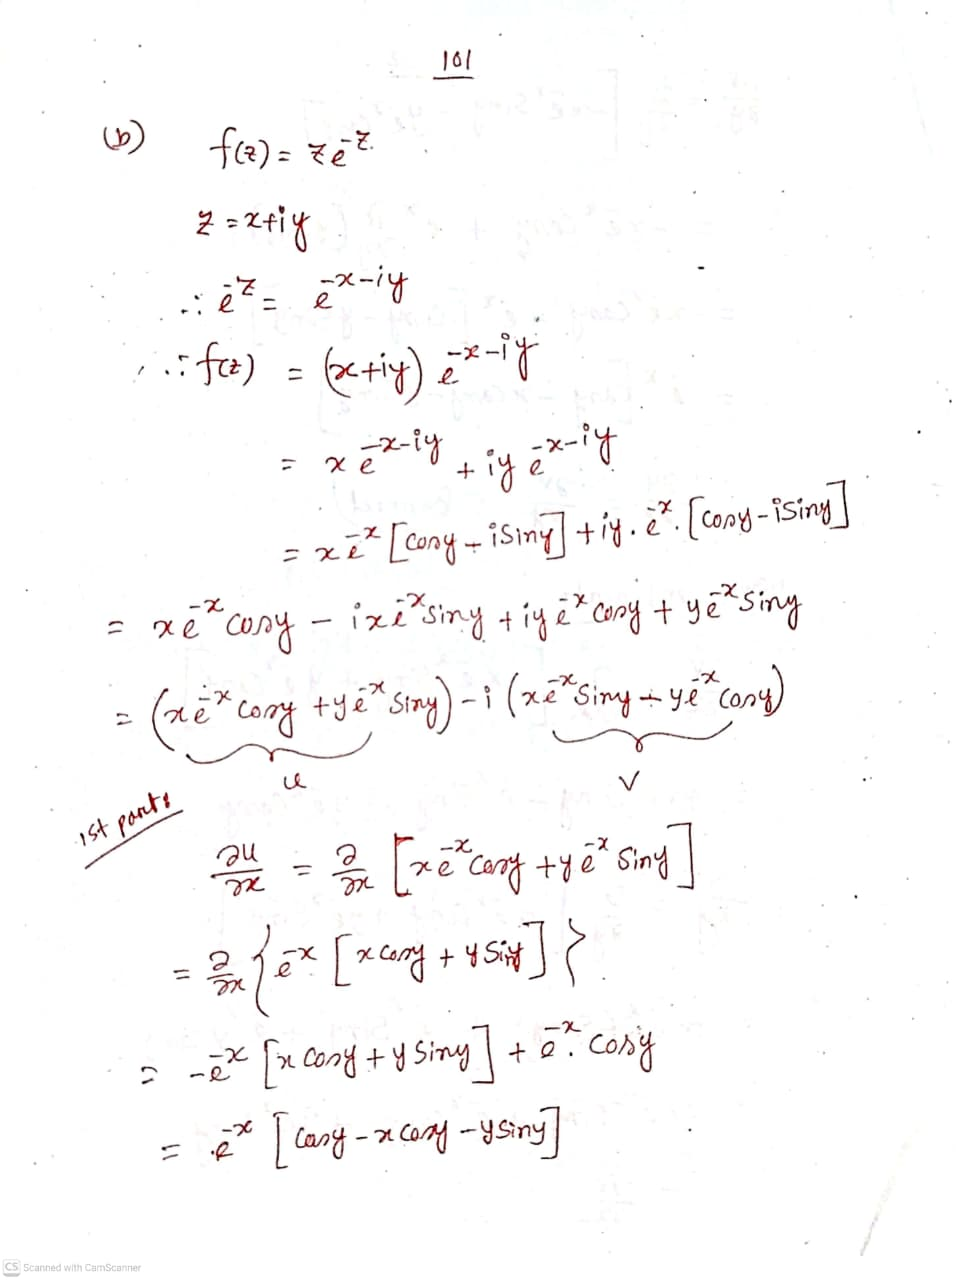 101
(b) f(z) = z e^-z.
z = x+iy
∴ e^-z = e^-x-iy
∴ f(z) = (x+iy) e^-x-iy
= x e^-x-iy + iy e^-x-iy
= x e^-x [cosy - iSiny] + iy. e^-x. [cosy - iSiny]
= x e^-x cosy - ix e^-x siny + iy e^-x cosy + y e^-x siny
= (x e^-x cosy + y e^-x Siny) - i (x e^-x Siny - y e^-x cosy)
u v
1st part:
∂u/∂x = ∂/∂x [x e^-x cosy + y e^-x Siny]
= ∂/∂x { e^-x [x cosy + y Siny] }
= -e^-x [x cosy + y Siny] + e^-x. cosy
= e^-x [cosy - x cosy - y siny]
CS Scanned with CamScanner